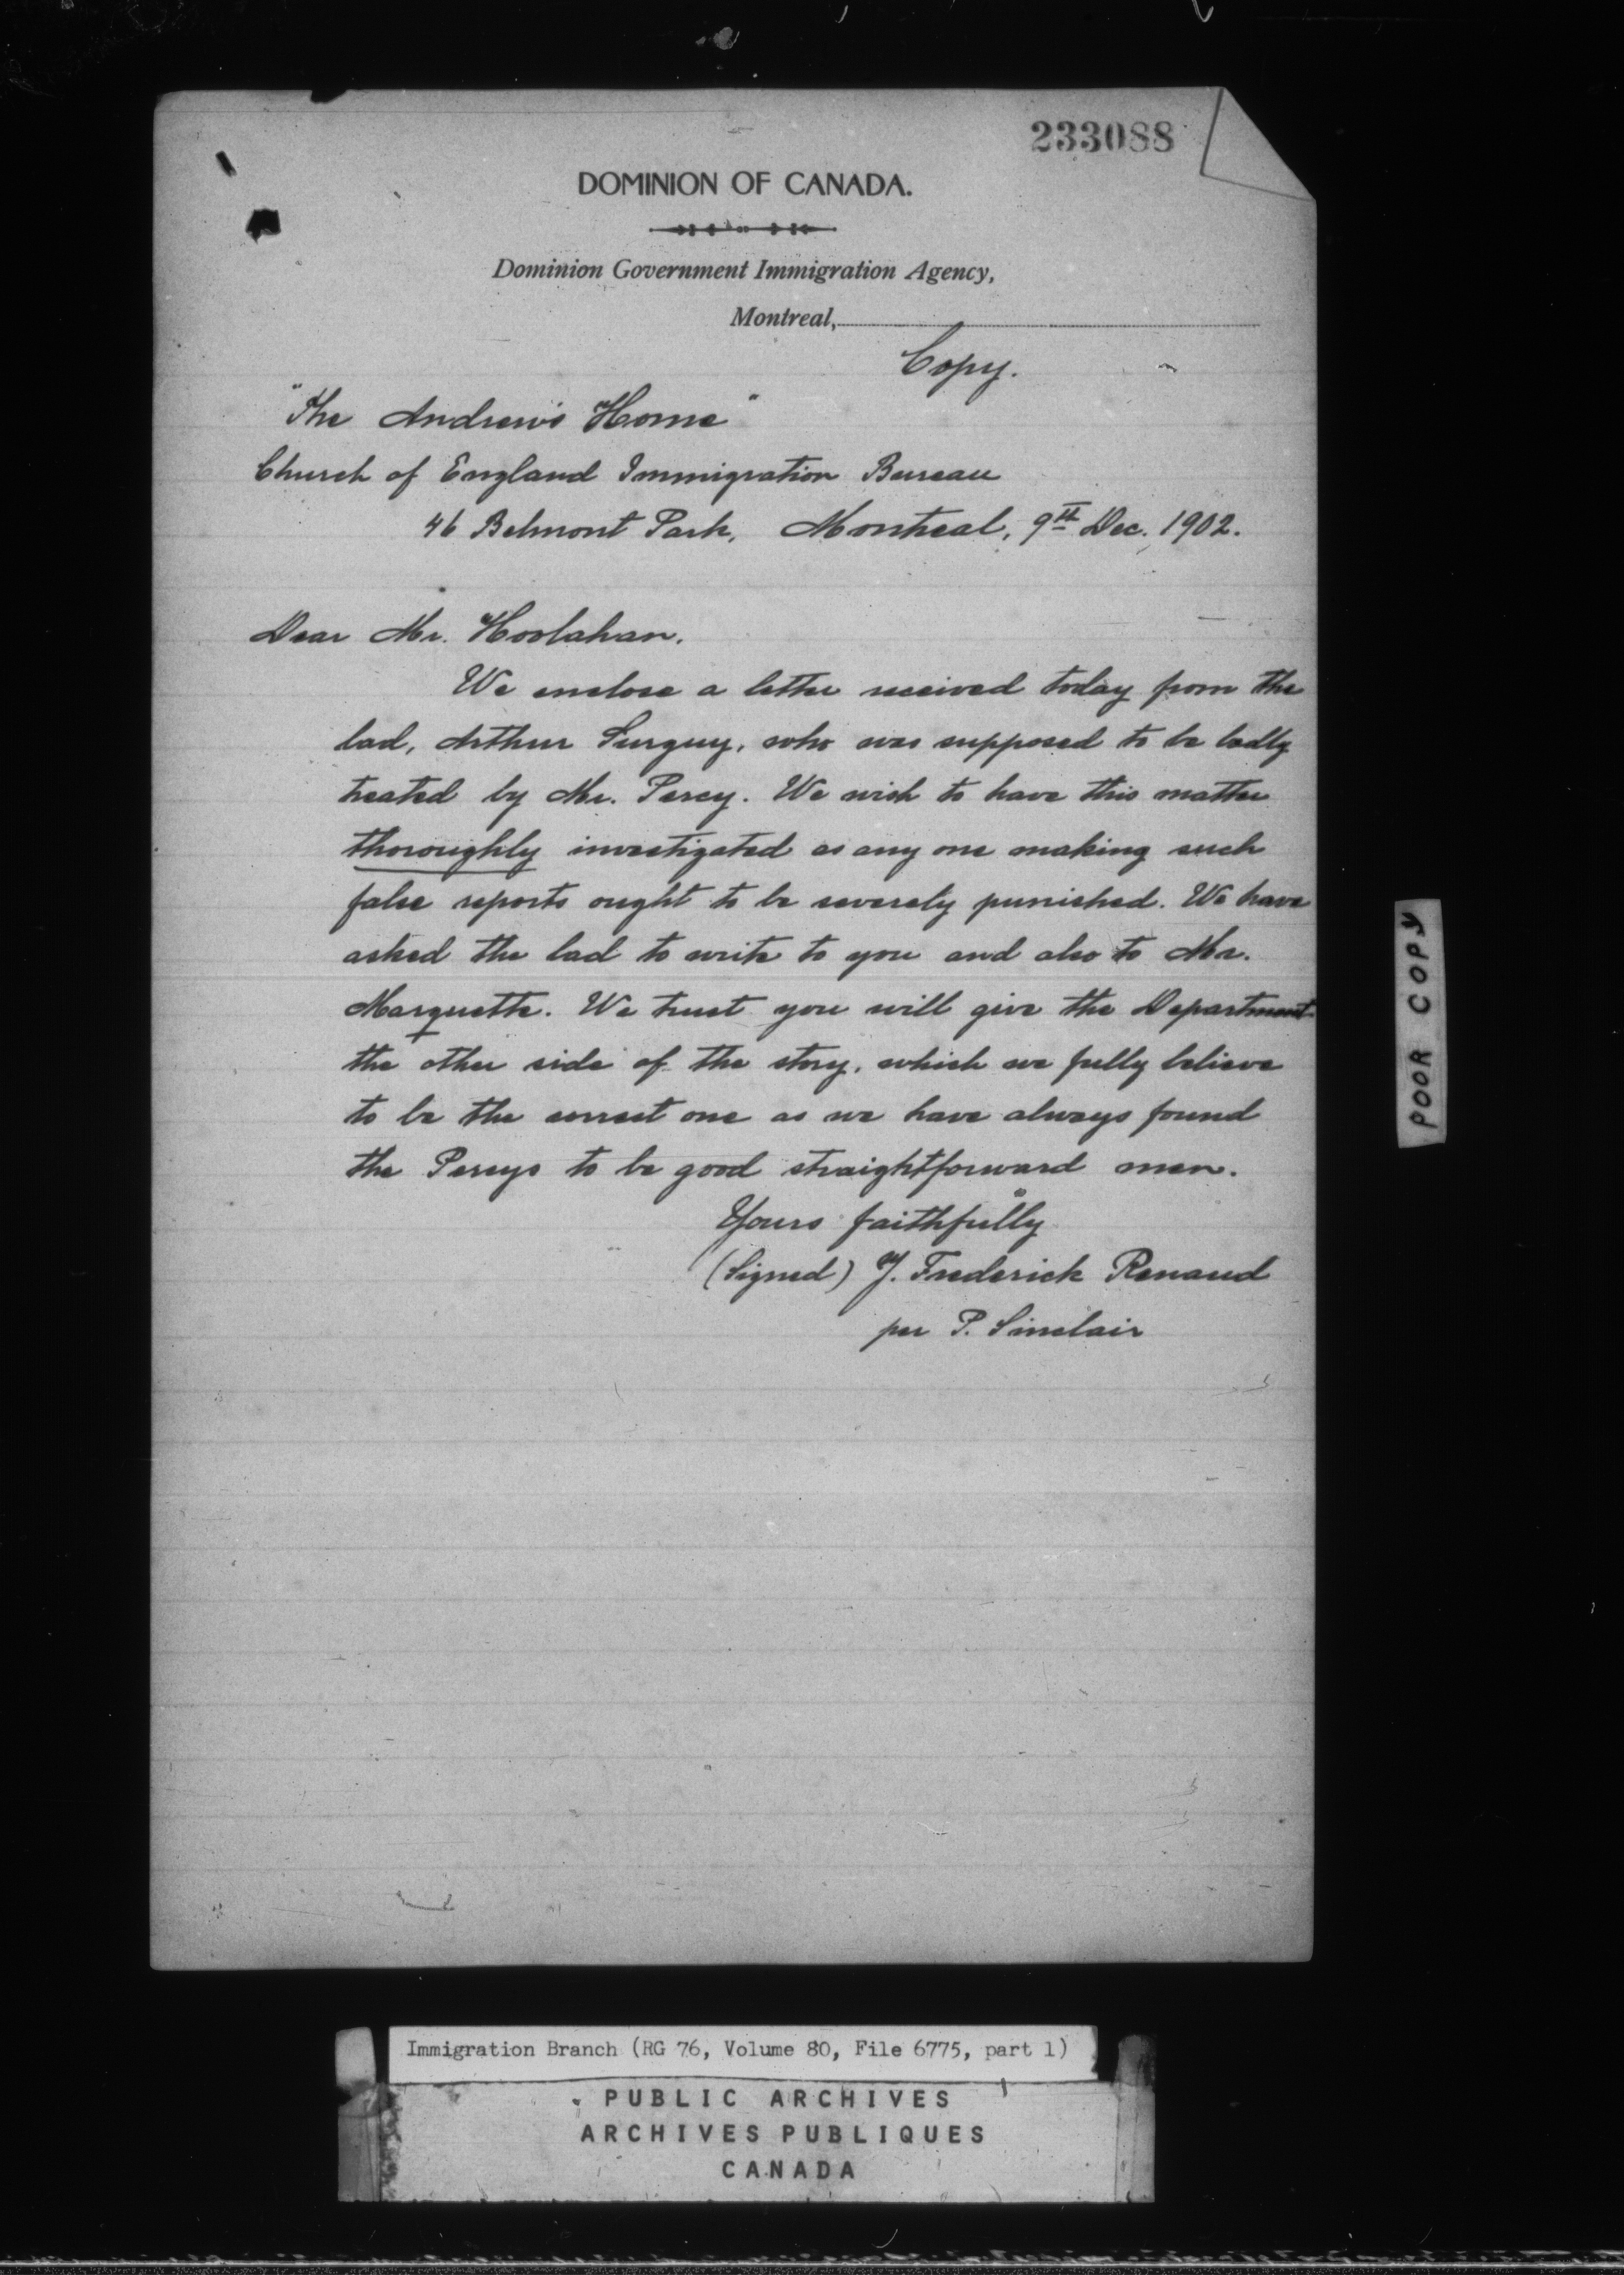 233088
DOMINION OF CANADA.
Dominion Government Immigration Agency,
Montreal,
Copy.
"The Andrews Home"
Church of England Immigration Bureau
46 Belmont Park, Montreal, 9th Dec. 1902.
Dear Mr. Hoolahan,
We enclose a letter received today from the
lad, Arthur Surguy, who was supposed to be badly
treated by Mr. Percy. We wish to have this matter
thoroughly investigated as any one making such
false reports ought to be severely punished. We have
asked the lad to write to you and also to Mr.
Marquette. We trust you will give the Department
the other side of the story, which we fully believe
to be the correct one as we have always found
the Percys to be good straightforward men.
Yours faithfully
(Signed) J. Frederick Renaud
per P. Sinclair
POOR COPY
Immigration Branch (RG 76, Volume 80, File 6775, part 1)
PUBLIC ARCHIVES
ARCHIVES PUBLIQUES
CANADA